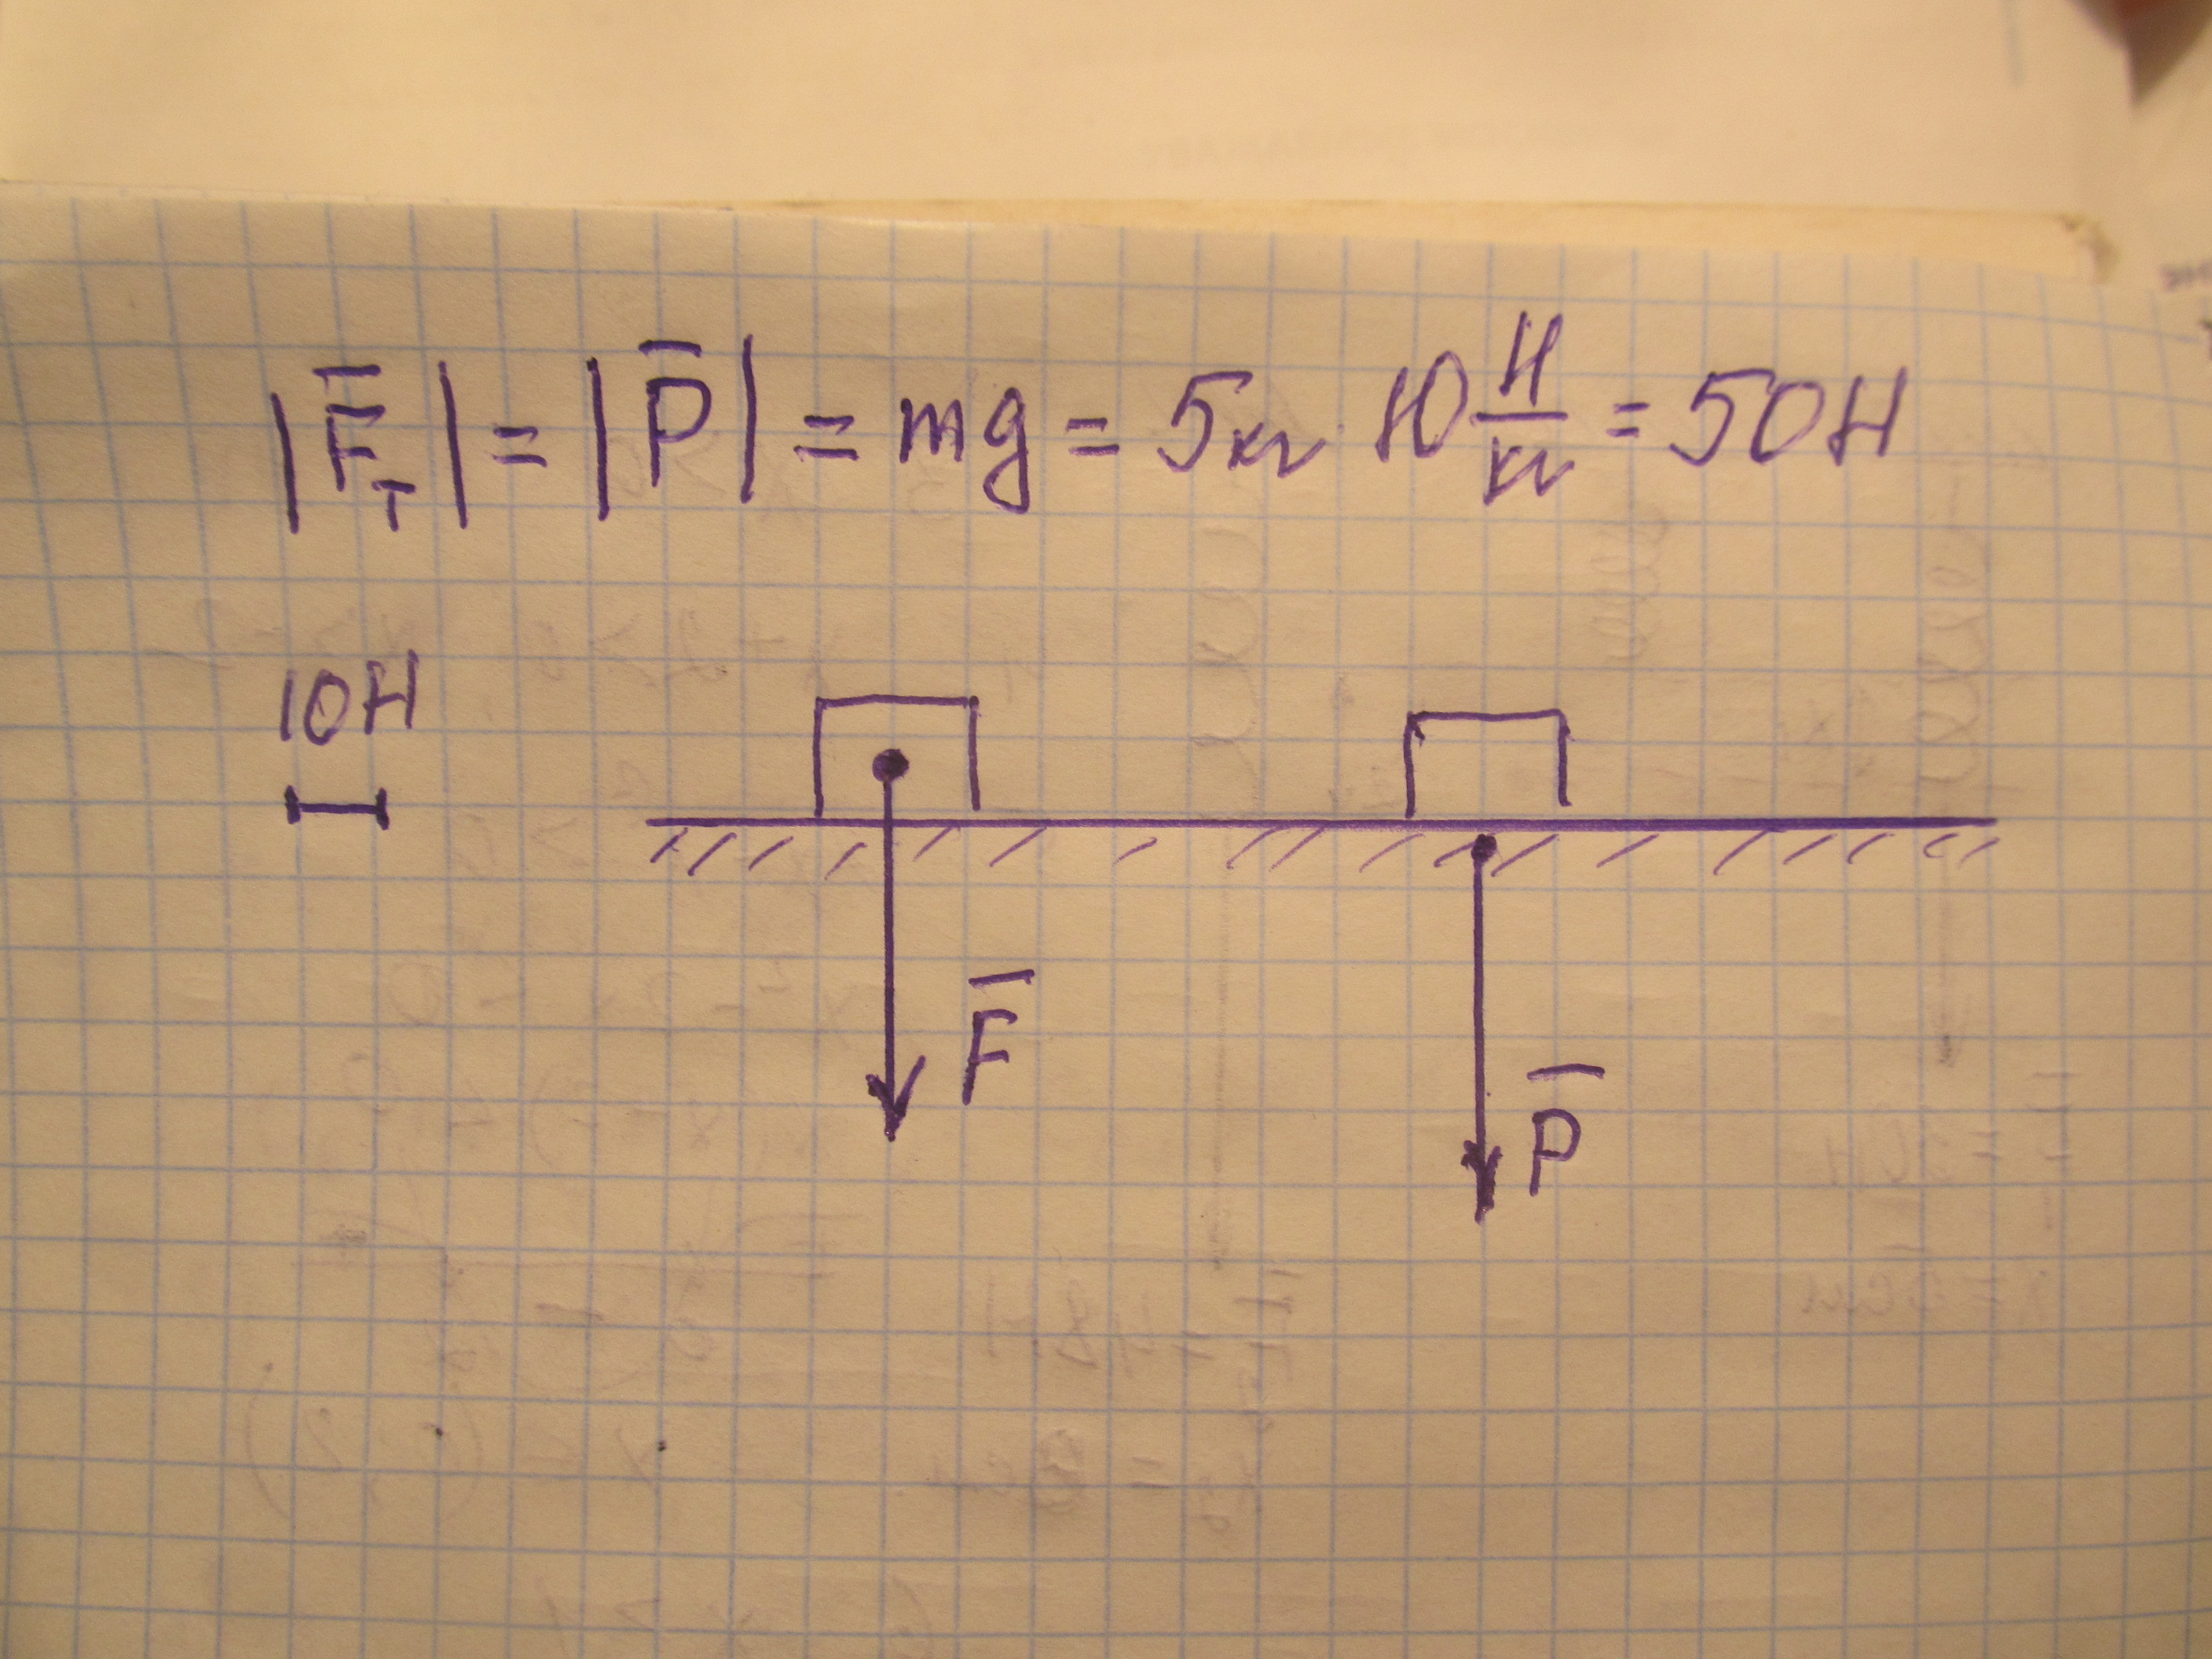 |F̅т| = |P̅| = mg = 5кг 10 Н/кг = 50Н
10Н
F̅
P̅